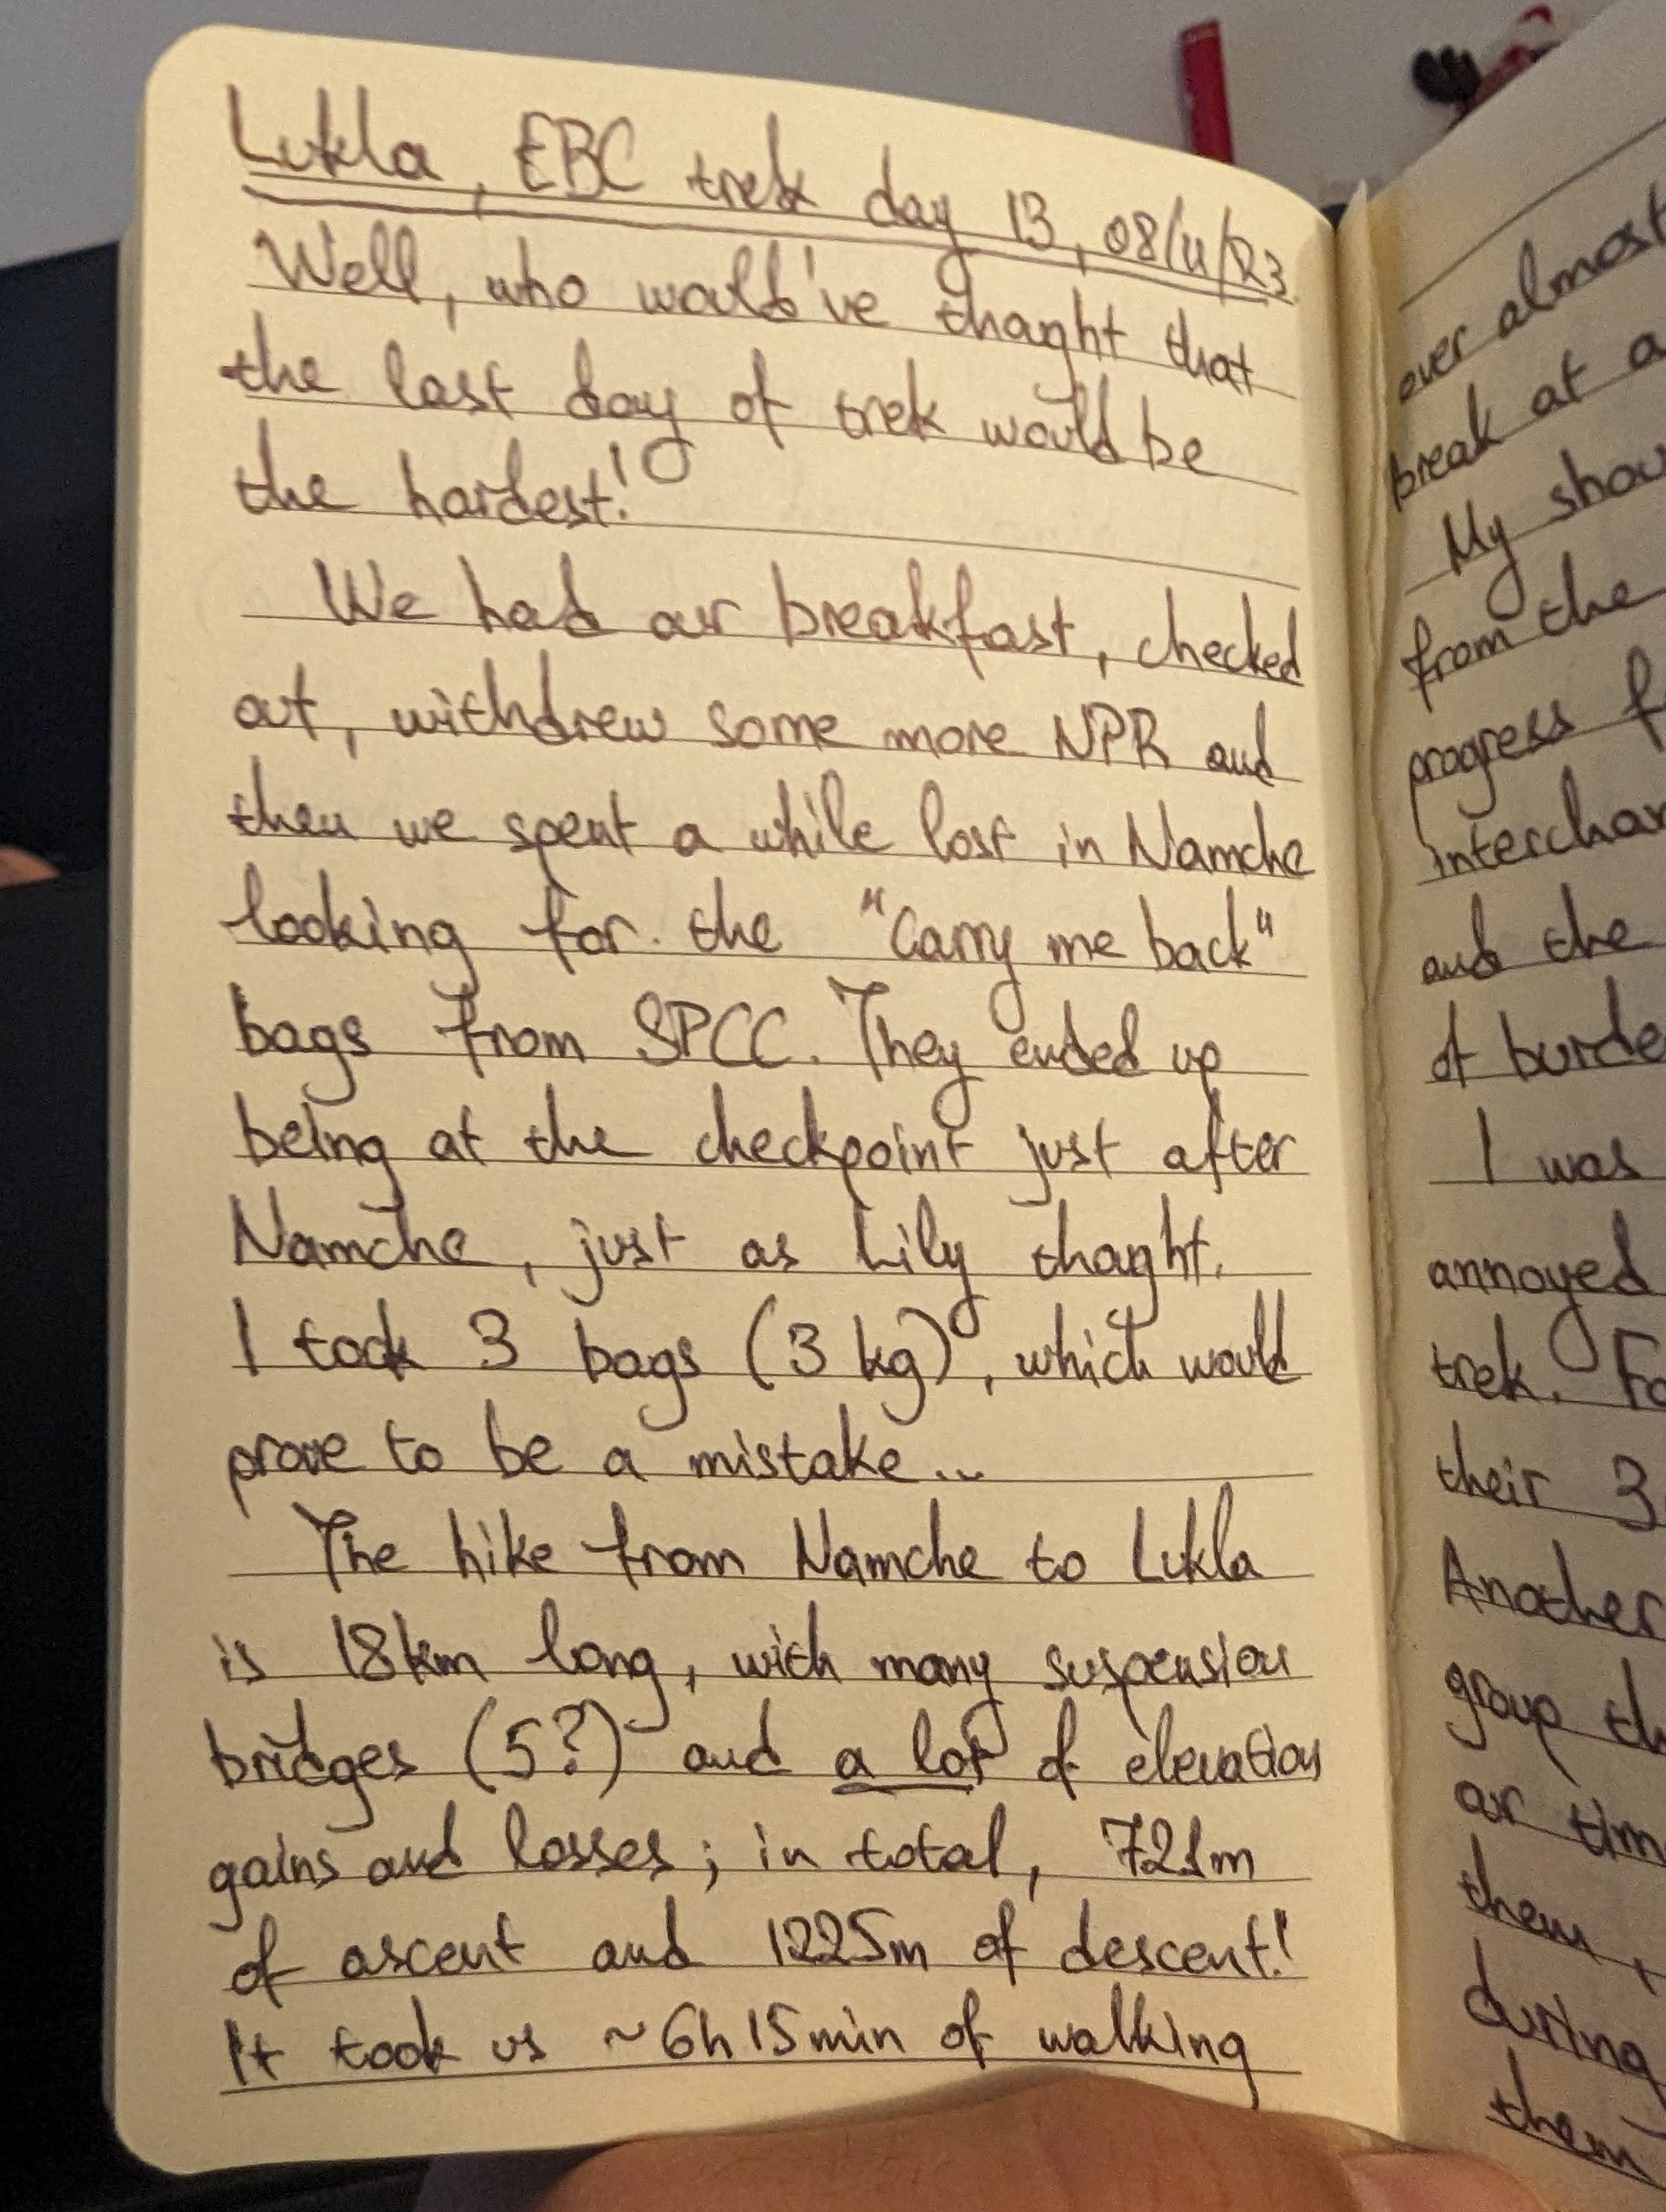 Lukla, EBC trek day 13, 08/11/23
Well, who would've thought that
the last day of trek would be
the hardest!
We had our breakfast, checked
out, withdrew some more NPR and
then we spent a while lost in Namche
looking for the "Carry me back"
bags from SPCC. They ended up
being at the checkpoint just after
Namche, just as Lily thought.
I took 3 bags (3 kg), which would
prove to be a mistake...
The hike from Namche to Lukla
is 18km long, with many suspension
bridges (5?) and a lot of elevation
gains and losses; in total, 721m
of ascent and 1225m of descent!
It took us ~6h 15min of walking
over almost
break at a
My
from the
progress
and the
of
I was
annoyed
trek.
their 3
Another
group
our
them,
during
them